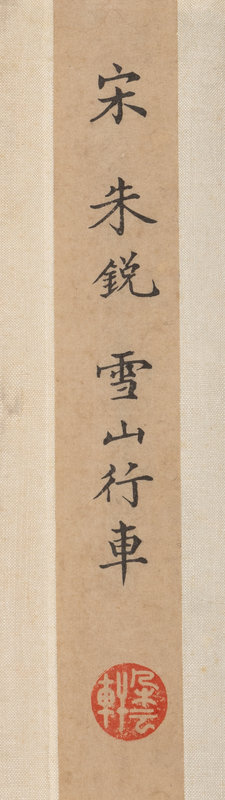 宋 朱銳 雪山行車